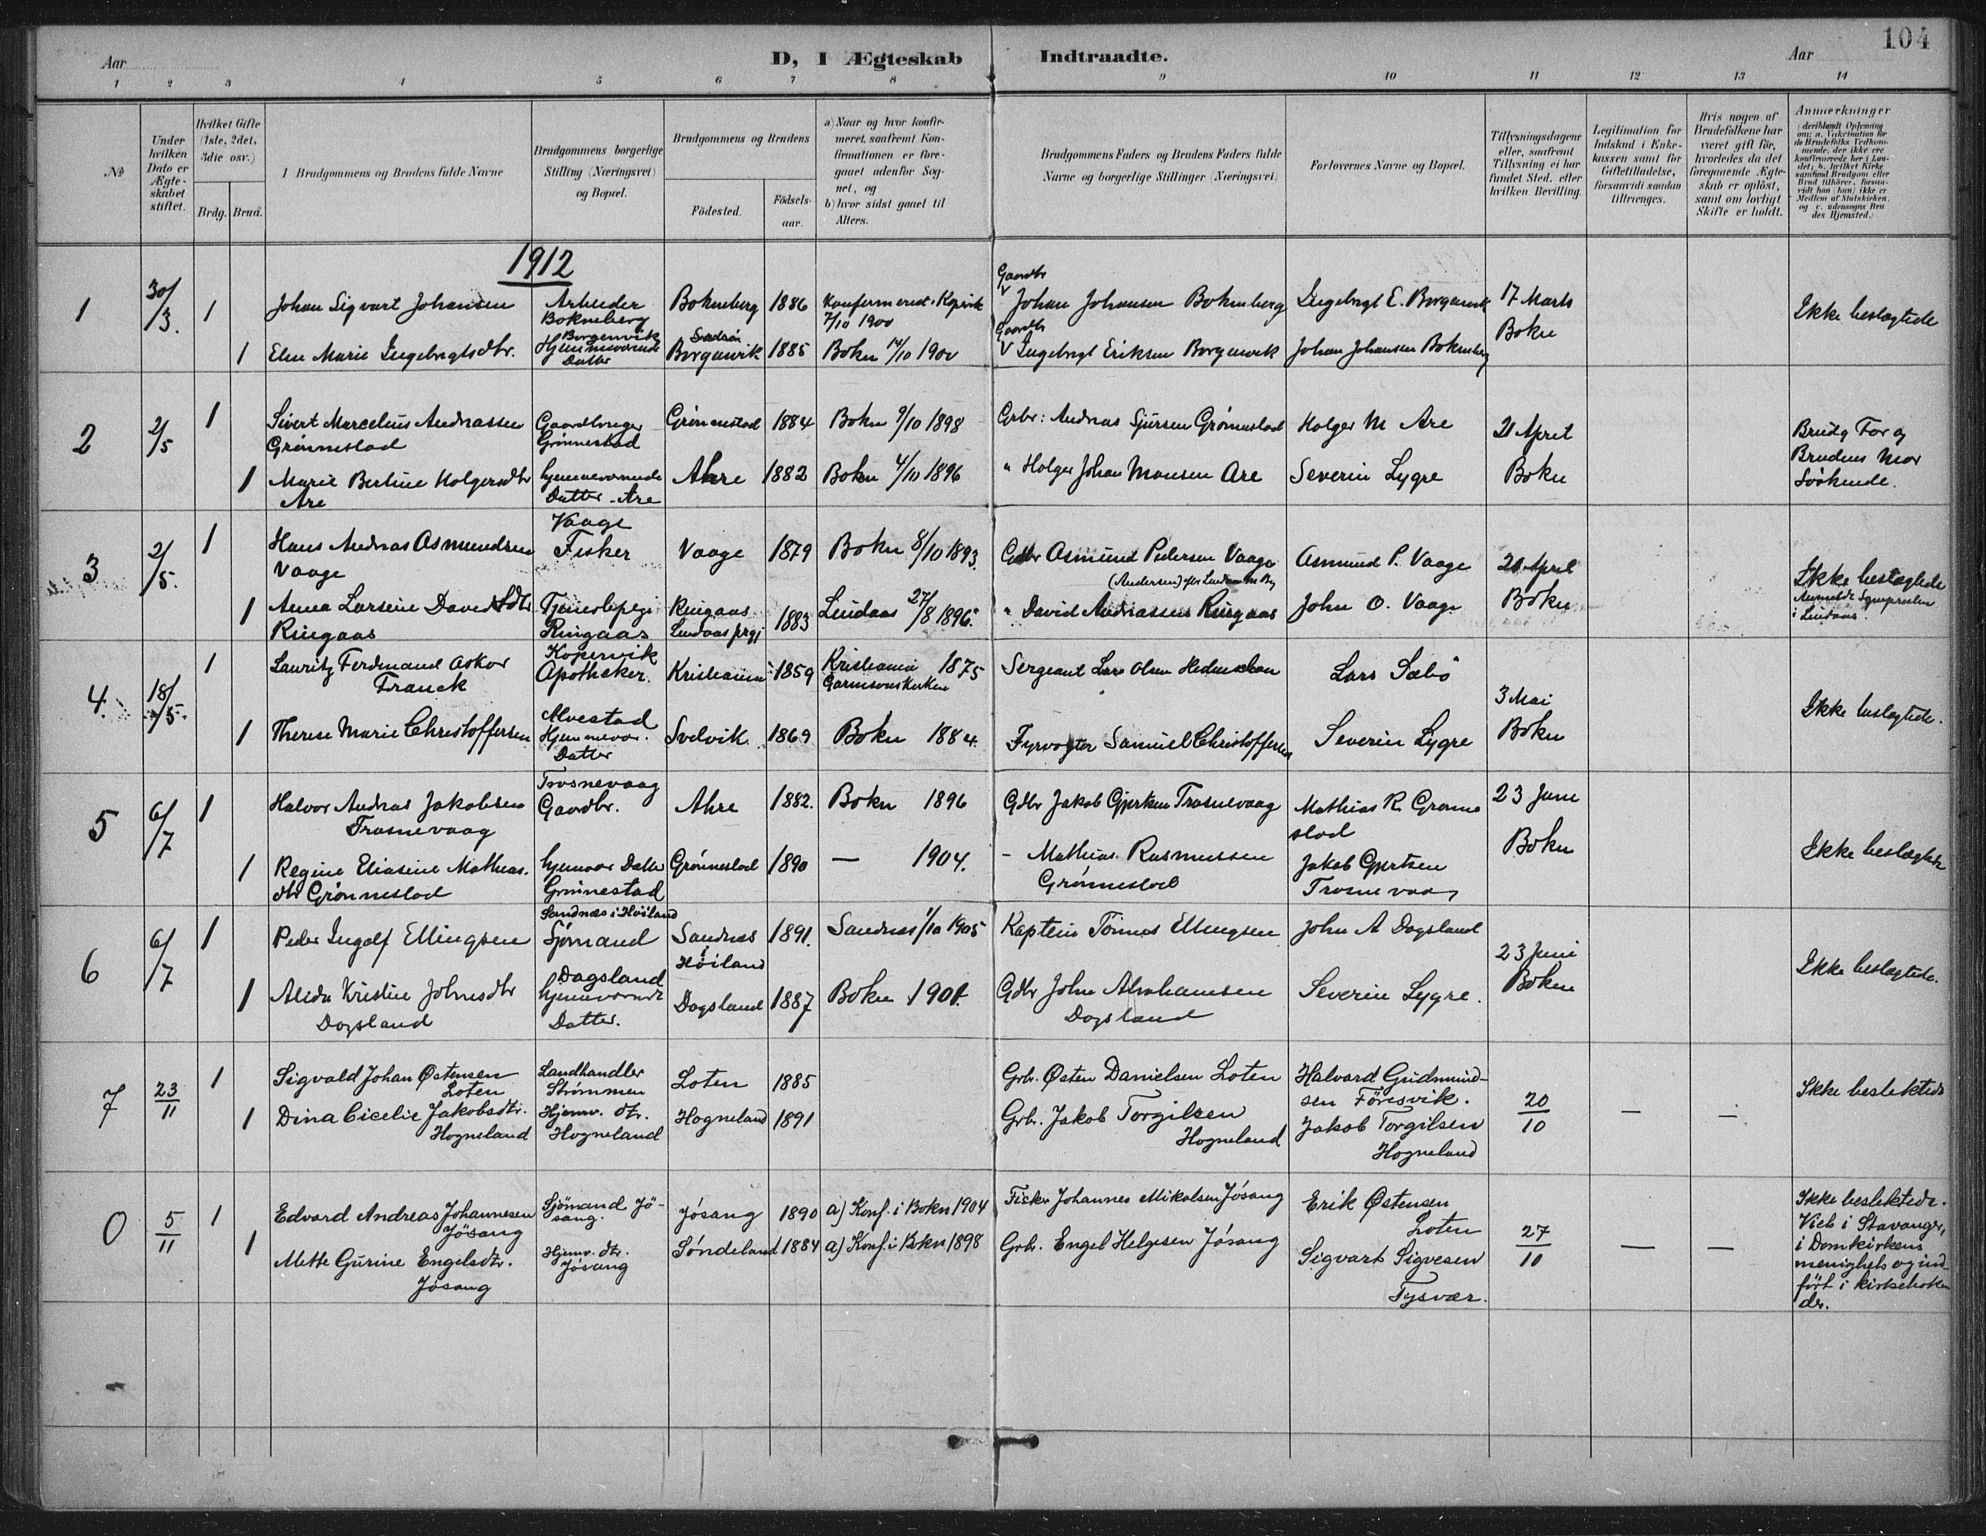 104
Aar D, I Ægteskab Indtraadte. Aar
1 2 3 4 5 6 7 8 9 10 11 12 13 14
No
Under hvilken Dato er Ægteskabet stiftet.
Hvilket Gifte (1ste, 2det, 3die osv.)
Brdg. Brud.
1 Brudgommens og Brudens fulde Navne
Brudgommens borgerlige Stilling (Næringsvei) og Bopæl.
Brudgommens og Brudens
Födested.
Födselsaar.
a) Naar og hvor konfirmeret, saafremt Konfirmationen er foregaaet udenfor Sognet, og
b) hvor sidst gaaet til Alters.
Brudgommens Faders og Brudens Faders fulde Navne og borgerlige Stillinger (Næringsvei)
Forlovernes Navne og Bopæl.
Tillysningsdagene eller, saafremt Tillysning ei har fundet Sted, efter hvilken Bevilling.
Legitimation for Indskud i Enkekassen samt for Giftetilladelse, forsaavidt saadan tiltrænges.
Hvis nogen af Brudefolkene har været gift för, hvorledes da det foregaaende Ægteskab er oplöst, samt om lovligt Skifte er holdt.
Anmerkninger
1912
1 30/3. 1 Johan Sigvart Johansen Arbeider Bokneberg Bokneberg 1886 Konfermeret i Kopervik 7/10 1900 Gaardbr Johan Johansen Bokneberg Ingebrigt E. Borgenvik 17 Marts Bokn Ikke beslægtede
1 Elen Marie Ingebrigtsdtr. Borgenvik Hjemmeværende Datter Borgenvik 1885 Bokn 14/10 1900 Gaardbr Ingebrigt Eriksen Borgenvik Johan Johansen Bokneberg
2 2/5 1 Sivert Marcelius Andreassen Grønnestad Gaardbruger Grønnestad Grønnestad 1884 Bokn 9/10 1898 Grbr: Andreas Sjursen Grønnestad Holger M Are 21 April Bokn Brudg Far og Brudens Mor Söskende.
1 Marie Bertine Holgersdtr Are hjemmeværende Datter Are Ahre 1882 Bokn 4/10 1896 " Holger Johan Monsen Are Severin Lygre
3 2/5. 1 Hans Andreas Asmundsen Vaage Vaage Fisker Vaage 1879 Bokn 8/10 1893. Gdbr Asmund Pedersen Vaage Asmund P. Vaage 21 April Bokn Ikke beslægtede
1 Anna Larsine Davidsdtr Ringaas Tjenestepige Ringaas Ringaas Lindaas prgj 1883 Lindaas 27/8 1896. " David Andreassen Ringaas John O. Vaage
(Andersen)
i Lindaas.
4. 18/5. 1 Lauritz Ferdinand Oskar Franck Kopervik Apotheker. Kristiania 1859 Kristiania 1875 Garnisonskirken Sergeant Lars Olsen Lars Sæbö 3 Mai Bokn Ikke beslægtede.
1 Therese Marie Christoffersen Alvestad Hjemmevær. Datter Svelvik. 1869 Bokn 1884. Fyrvogter Samuel Christoffersen Severin Lygre
5 6/7 1 Halvor Andreas Jakobsen Trosnevaag Trosnevaag Gaardbr. Ahre 1882. Bokn 1896 Gdbr Jakob Gjertsen Trosnevaag Mathias R. Grønnestad 23 Juni Bokn Ikke beslægtede
1 Regine Eliasine Mathiasdtr Grønnestad hjemvær Datter Grønnestad Grönnestad 1890 — 1904. - Mathias Rasmussen Grønnestad Jakob Gjertsen Trosnevaag
6 6/7 1 Peder Ingolf Ellingsen Sandnæs i Höiland Sjömand Sandnæs Höiland 1891. Sandnæs 1/10 1905 Kaptein Tönnes Ellingsen John A Dagsland 23 Juni Bokn Ikke beslægtede.
1 Alida Kristine Johnsdtr Dagsland Dagsland hjemværende Datter. Dagsland 1887 Bokn 1901. Gdbr John Abrahamsen Dagsland Severin Lygre.
7 23/11 1 Sigvald Johan Østensen Loten Landhandler Strømmen Loten 1885 Grbr. Østen Danielsen Loten Halvard Gudmundsen Föresvik. 20/10 — — Ikke beslektede
1 Dina Cicelie Jakobsdtr. Hogneland Hjemv. dtr. Hogneland Hogneland 1891 Grbr. Jakob Torgilsen Hogneland Jakob Torgilsen Hogneland
0 5/11 1 Edvard Andreas Johannesen Jösang Sjömand Jösang. Jösang 1890 a) Konf. i Bokn 1904 Fisker Johannes Mikalsen Jösang Erik Østensen Loten 27/10 — — Ikke beslektede. Viet i Stavanger, i Domkirkens menighet og indfört i kirkeboken der.
1 Mette Gurine Engelsdtr. Jösang Hjemv. dtr. Jösang Söndeland 1884 a) Konf. i Bokn 1898 Grbr. Engel Helgesen Jösang Sigvart Sigvesen Tysvær.